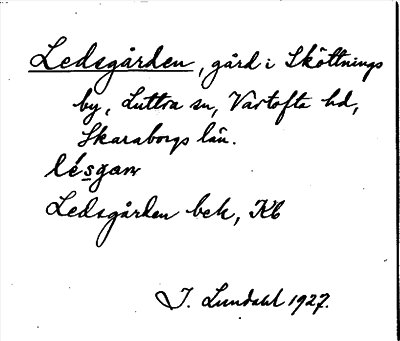 Ledsgården, gård i Sköttnings
by, Luttra sn, Vartofta hd,
Skaraborgs län.
Ledsgården bek, Kb
I. Lundahl 1927.